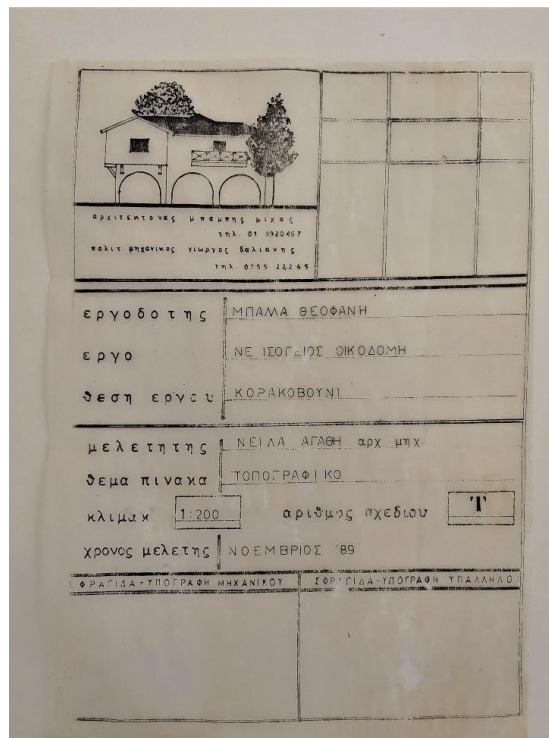 αρχιτεκτονας μπαμπης μιχος
τηλ. 01 9920457
πολιτ. μηχανικος γιωργος δαλιανης
τηλ. 0755 22265
εργοδοτης ΜΠΑΛΛΑ ΘΕΟΦΑΝΗ
εργο ΝΕ ΙΣΟΓΕΙΟΣ ΟΙΚΟΔΟΜΗ
θεση εργου ΚΟΡΑΚΟΒΟΥΝΙ
μελετητης ΝΕΙΛΑ ΑΓΑΘΗ αρχ μηχ.
θεμα πινακα ΤΟΠΟΓΡΑΦΙΚΟ
κλιμακ 1:200 αριθμος σχεδιου Τ
χρονος μελετης ΝΟΕΜΒΡΙΟΣ '89
ΣΦΡΑΓΙΔΑ-ΥΠΟΓΡΑΦΗ ΜΗΧΑΝΙΚΟΥ ΣΦΡΑΓΙΔΑ-ΥΠΟΓΡΑΦΗ ΥΠΑΛΛΗΛΟ